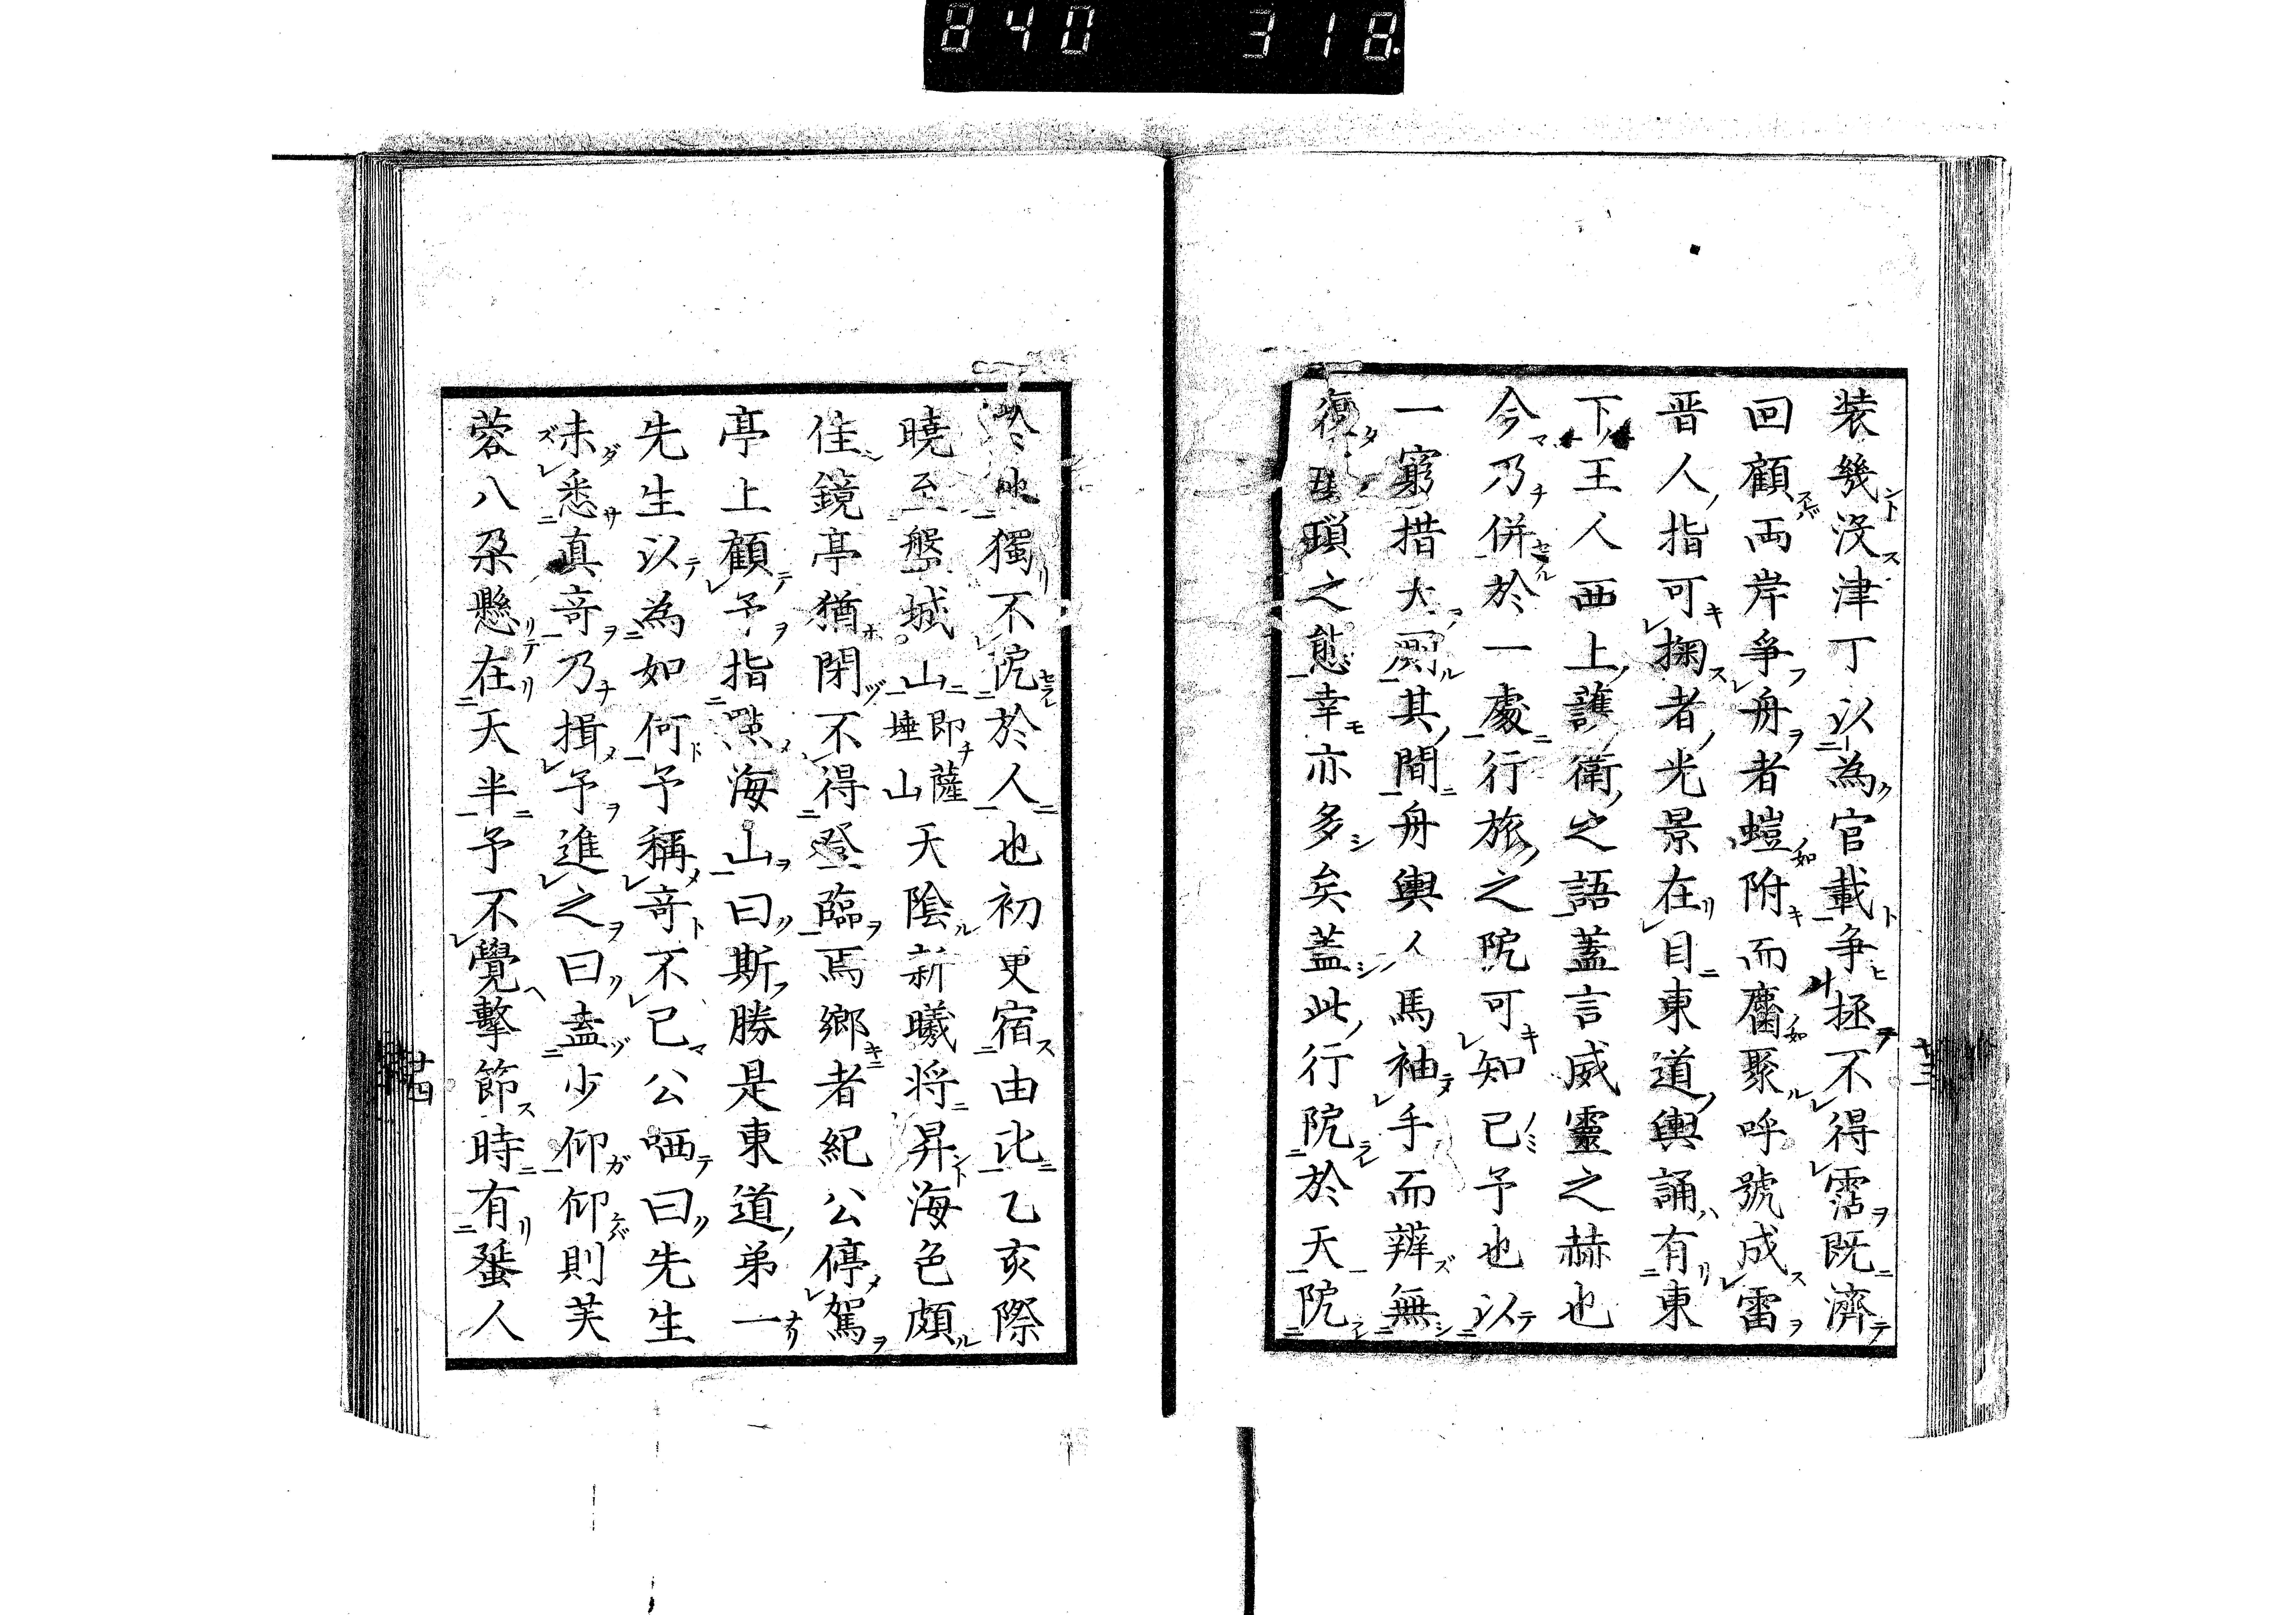 840 318
装幾沒津丁以為官載争拯不得霑既濟
回顧両岸爭舟者螘附而麕聚呼號成雷
晋人指可掬者光景在目東道輿誦有東
下王人西上護衛之語蓋言威靈之赫也
今乃併於一處行旅之阨可知已予也以
一窮措大厠其間舟輿人馬袖手而辨無
復瑣之憊幸亦多矣蓋此行阨於天阨
於地獨不阨於人也初更宿由比乙亥際
曉至盤城山即薩埵山天陰新曦将昇海色頗
佳鏡亭猶閉不得登臨焉鄉者紀公停駕
亭上顧予指點海山曰斯勝是東道弟一
先生以為如何予稱竒不已公哂曰先生
未悉真竒乃揖予進之曰盍少仰仰則芙
蓉八朶懸在天半予不覺擊節時有蜑人
廿三
廿四